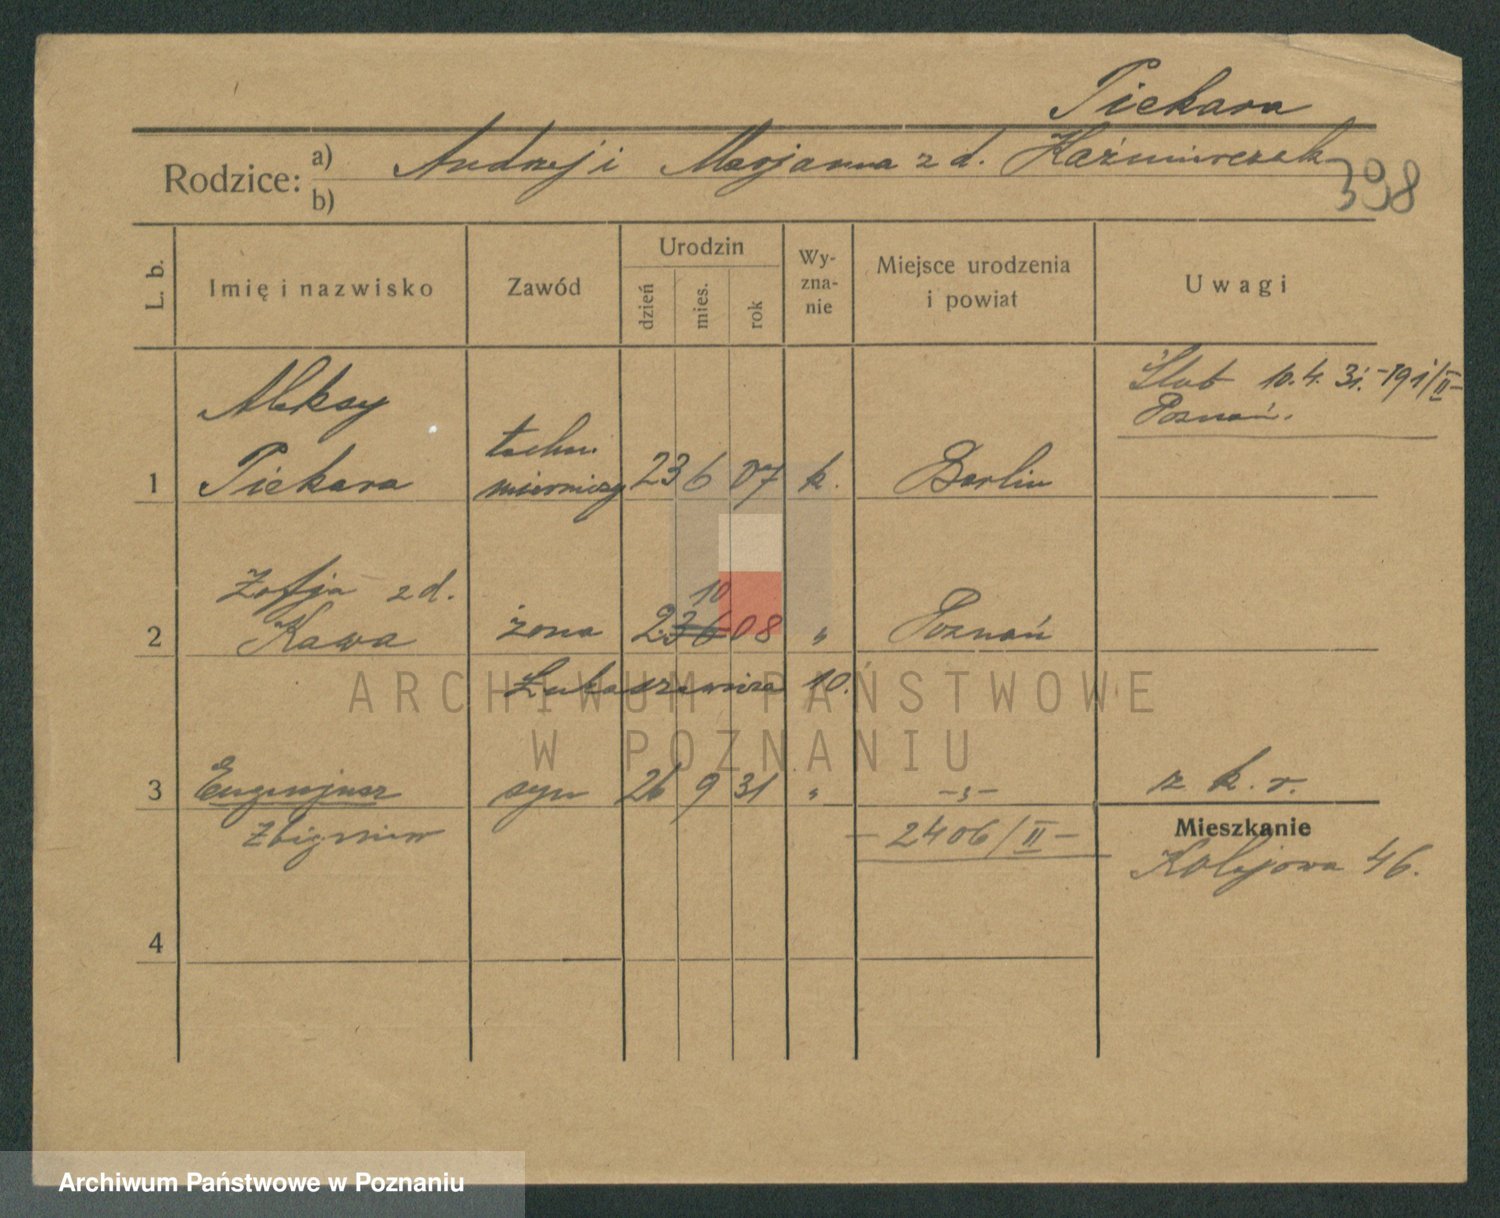 Piekara
Rodzice: a) Andrzej i Marjanna z d. Kaźmierczak
b)
398
L. b. Imię i nazwisko Zawód Urodzin dzień mies. rok Wyznanie Miejsce urodzenia i powiat Uwagi
Ślub 10.4.31.-191/II-
Poznań.
Aleksy techn.
1 Piekara mierniczy 23 6 07 k. Berlin
Zofja z d. 10
2 Kawa żona 23 6 08 " Poznań
Łukaszewicza 10.
3 Eugenjusz syn 26 9 31 " -"- z k. r.
Zbigniew - 2406/II - Mieszkanie
Kolejowa 46.
4
ARCHIWUM PAŃSTWOWE
W POZNANIU
Archiwum Państwowe w Poznaniu